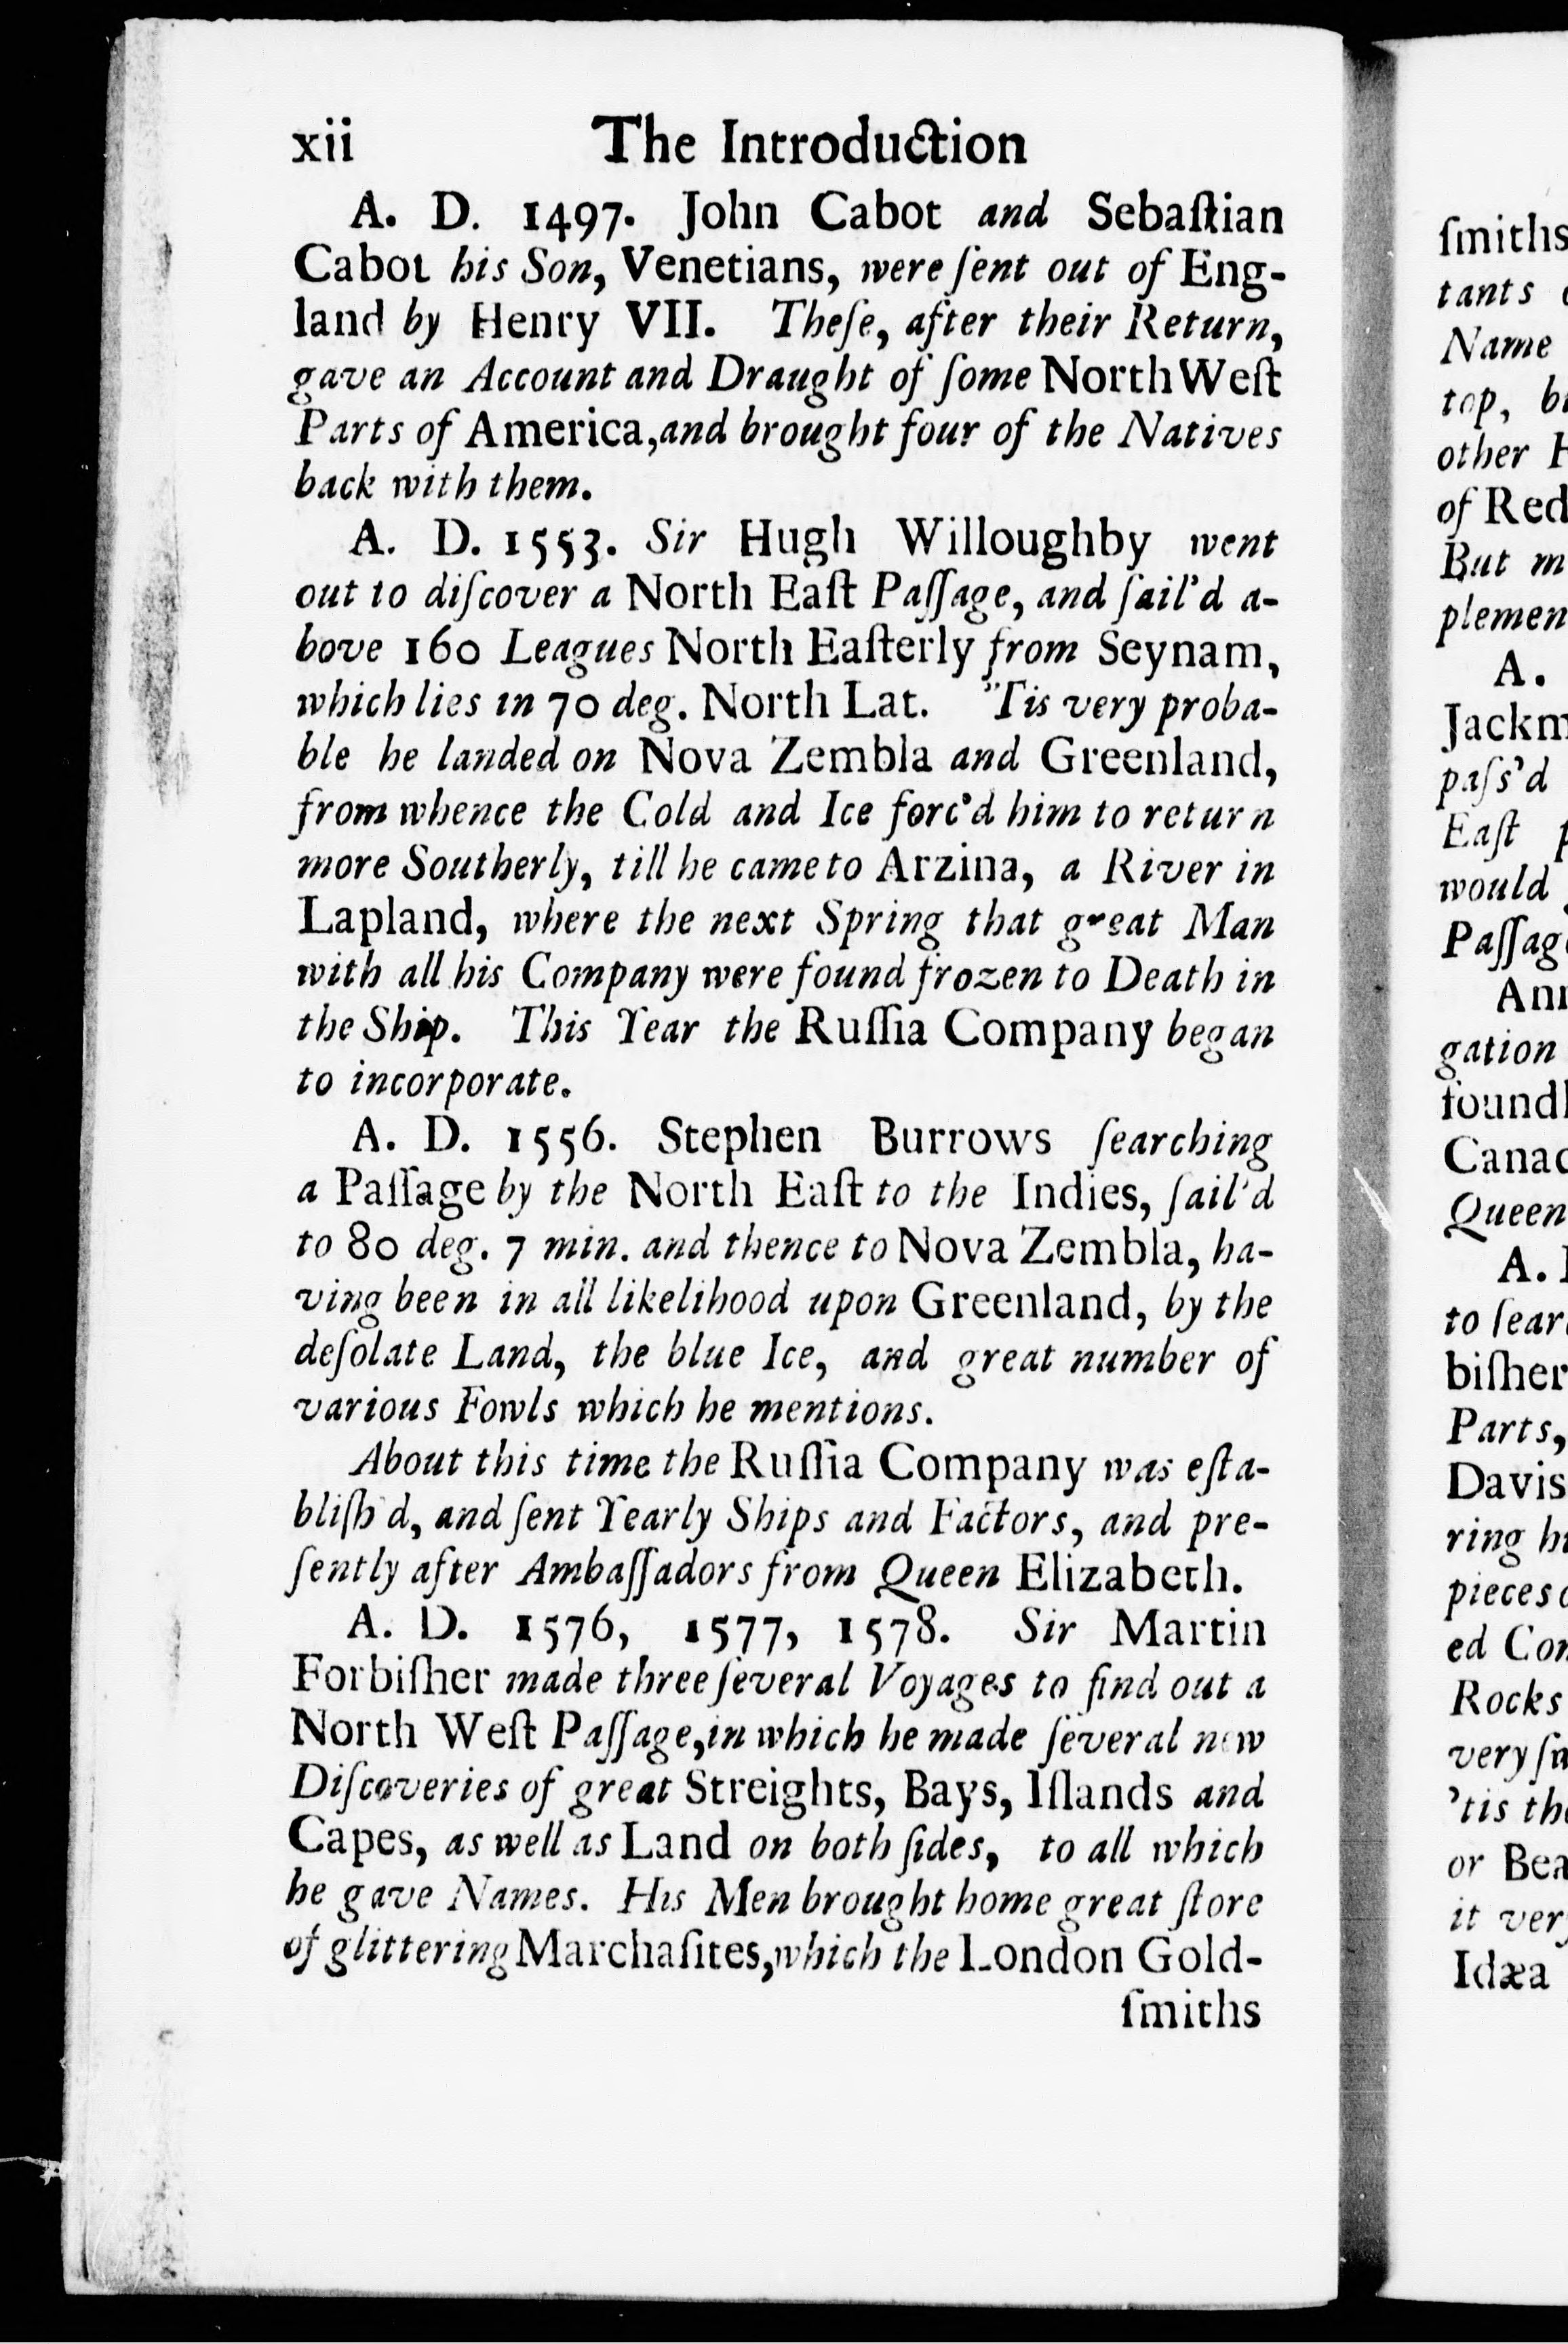 xii The Introduction
A. D. 1497. John Cabot and Sebaſtian
Cabot his Son, Venetians, were ſent out of Eng-
land by Henry VII. Theſe, after their Return,
gave an Account and Draught of ſome North Weſt
Parts of America, and brought four of the Natives
back with them.
A. D. 1553. Sir Hugh Willoughby went
out to diſcover a North Eaſt Paſſage, and ſail'd a-
bove 160 Leagues North Eaſterly from Seynam,
which lies in 70 deg. North Lat. "Tis very proba-
ble he landed on Nova Zembla and Greenland,
from whence the Cold and Ice forc'd him to return
more Southerly, till he came to Arzina, a River in
Lapland, where the next Spring that great Man
with all his Company were found frozen to Death in
the Ship. This Year the Ruſſia Company began
to incorporate.
A. D. 1556. Stephen Burrows ſearching
a Paſſage by the North Eaſt to the Indies, ſail'd
to 80 deg. 7 min. and thence to Nova Zembla, ha-
ving been in all likelihood upon Greenland, by the
deſolate Land, the blue Ice, and great number of
various Fowls which he mentions.
About this time the Ruſſia Company was eſta-
bliſh'd, and ſent Yearly Ships and Factors, and pre-
ſently after Ambaſſadors from Queen Elizabeth.
A. D. 1576, 1577, 1578. Sir Martin
Forbiſher made three ſeveral Voyages to find out a
North Weſt Paſſage, in which he made ſeveral new
Diſcoveries of great Streights, Bays, Iſlands and
Capes, as well as Land on both ſides, to all which
he gave Names. His Men brought home great ſtore
of glittering Marchaſites, which the London Gold-
ſmiths
ſmiths
tants
Name
top,
other
of Red
But
plemen
A.
Jackm
paſs'd
Eaſt
would
Paſſag
Ann
gation
foundl
Canad
Queen
A.
to ſear
biſher
Parts,
Davis
ring
pieces
ed Con
Rocks
very
'tis
or Bea
it very
Idæa